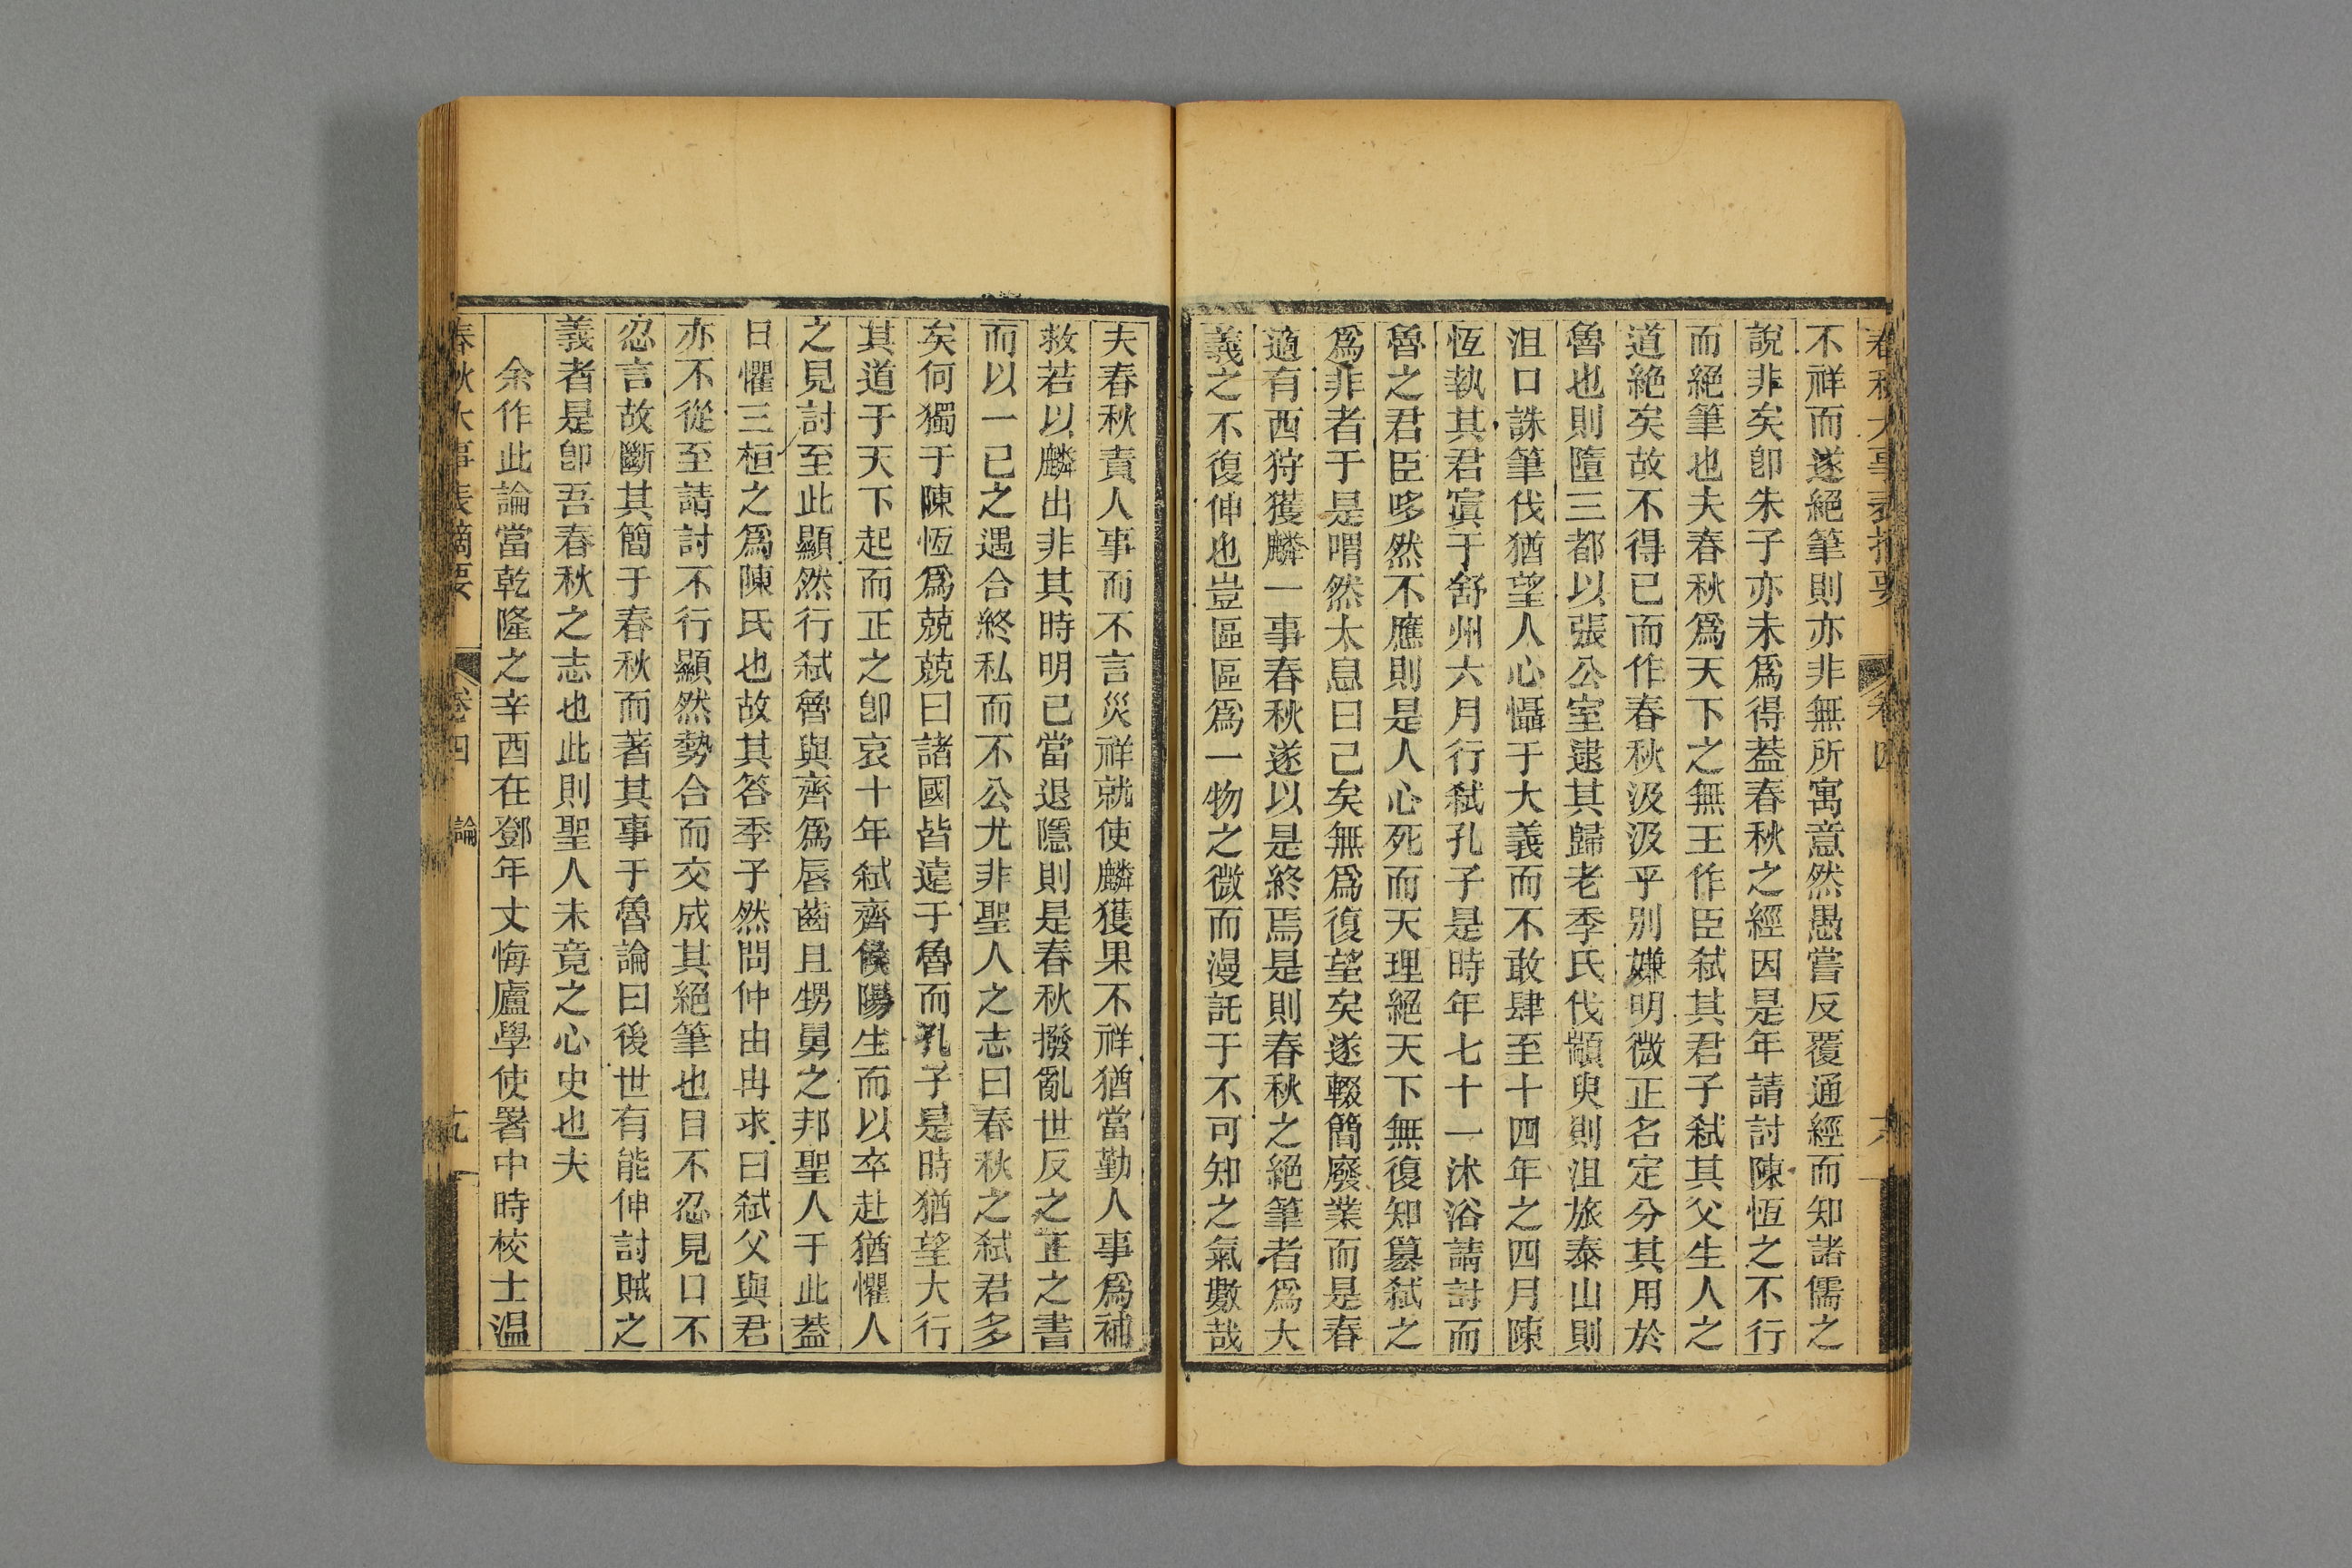 春秋大事表摘要 卷四 六
不祥而遂絕筆則亦非無所寓意然愚嘗反覆通經而知諸儒之
說非矣卽朱子亦未爲得葢春秋之經因是年請討陳恆之不行
而絕筆也夫春秋爲天下之無王作臣弑其君子弑其父生人之
道絕矣故不得已而作春秋汲汲乎别嫌明微正名定分其用於
魯也則墮三都以張公室逮其歸老季氏伐顓臾則沮旅泰山則
沮口誅筆伐猶望人心懾于大義而不敢肆至十四年之四月陳
恆執其君寘于舒州六月行弑孔子是時年七十一沐浴請討而
魯之君臣哆然不應則是人心死而天理絕天下無復知簒弑之
爲非者于是喟然太息曰已矣無爲復望矣遂輟簡廢業而是春
適有西狩獲麟一事春秋遂以是終焉是則春秋之絕筆者爲大
義之不復伸也豈區區爲一物之微而漫託于不可知之氣數哉
夫春秋責人事而不言災祥就使麟獲果不祥猶當勤人事爲補
救若以麟出非其時明已當退隱則是春秋撥亂世反之正之書
而以一已之遇合終私而不公尤非聖人之志曰春秋之弑君多
矣何獨于陳恆爲兢兢曰諸國皆遠于魯而孔子是時猶望大行
其道于天下起而正之卽哀十年弑齊侯陽生而以卒赴猶懼人
之見討至此顯然行弑魯與齊爲唇齒且甥舅之邦聖人于此葢
日懼三桓之爲陳氏也故其答季子然問仲由冉求曰弑父與君
亦不從至請討不行顯然勢合而交成其絕筆也目不忍見口不
忍言故斷其簡于春秋而著其事于魯論曰後世有能伸討賊之
義者是卽吾春秋之志也此則聖人未竟之心史也夫
余作此論當乾隆之辛酉在鄧年丈悔廬學使署中時校士温
春秋大事表摘要 卷四 論